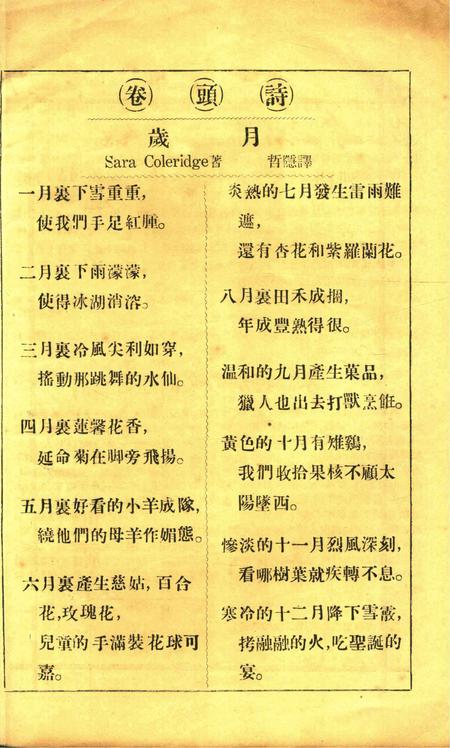 卷頭詩
歲月
Sara Coleridge著 哲隱譯
一月裏下雪重重，
使我們手足紅腫。
二月裏下雨濛濛，
使得冰湖消溶。
三月裏冷風尖利如穿，
搖動那跳舞的水仙。
四月裏蓮馨花香，
延命菊在脚旁飛揚。
五月裏好看的小羊成隊，
繞他們的母羊作媚態。
六月裏產生慈姑，百合
花，玫瑰花，
兒童的手滿裝花球可
嘉。
炎熱的七月發生雷雨難
遮，
還有杏花和紫羅蘭花。
八月裏田禾成捆，
年成豐熟得很。
溫和的九月產生菓品，
獵人也出去打獸烹飪。
黃色的十月有雉鷄，
我們收拾果核不顧太
陽墜西。
慘淡的十一月烈風深刻，
看哪樹葉就疾轉不息。
寒冷的十二月降下雪霰，
拷融融的火，吃聖誕的
宴。